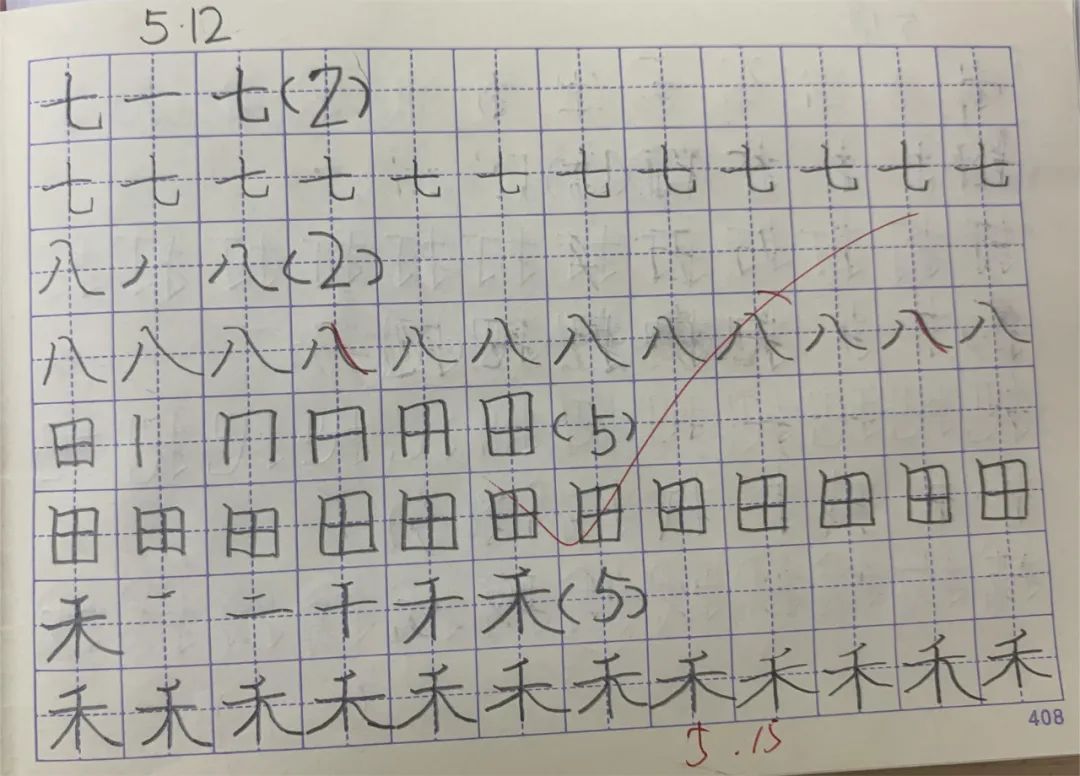 5.12
七 一 七 (2)
七 七 七 七 七 七 七 七 七 七 七 七
八 丿 八 (2)
八 八 八 八 八 八 八 八 八 八 八 八
田 丨 冂 田 (5)
田 田 田 田 田 田 田 田 田 田 田 田
禾 一 二 千 禾 禾 (5)
禾 禾 禾 禾 禾 禾 禾 禾 禾 禾 禾 禾
408
5.15